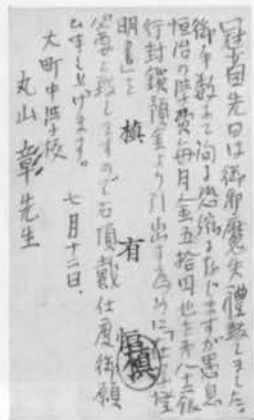 冠省先日は御邪魔失禮致しました。
御手数まで洵に恐縮に存じますが愚息
恒治の學費毎月金五拾四也を銀
行封鎖預金より引出す為めに「在
明書」を
必要と致しますので右頂戴仕度御願
ひ申し上げます。
七月十二日、
槙 有恒
槙
大町中學校
丸山彰先生